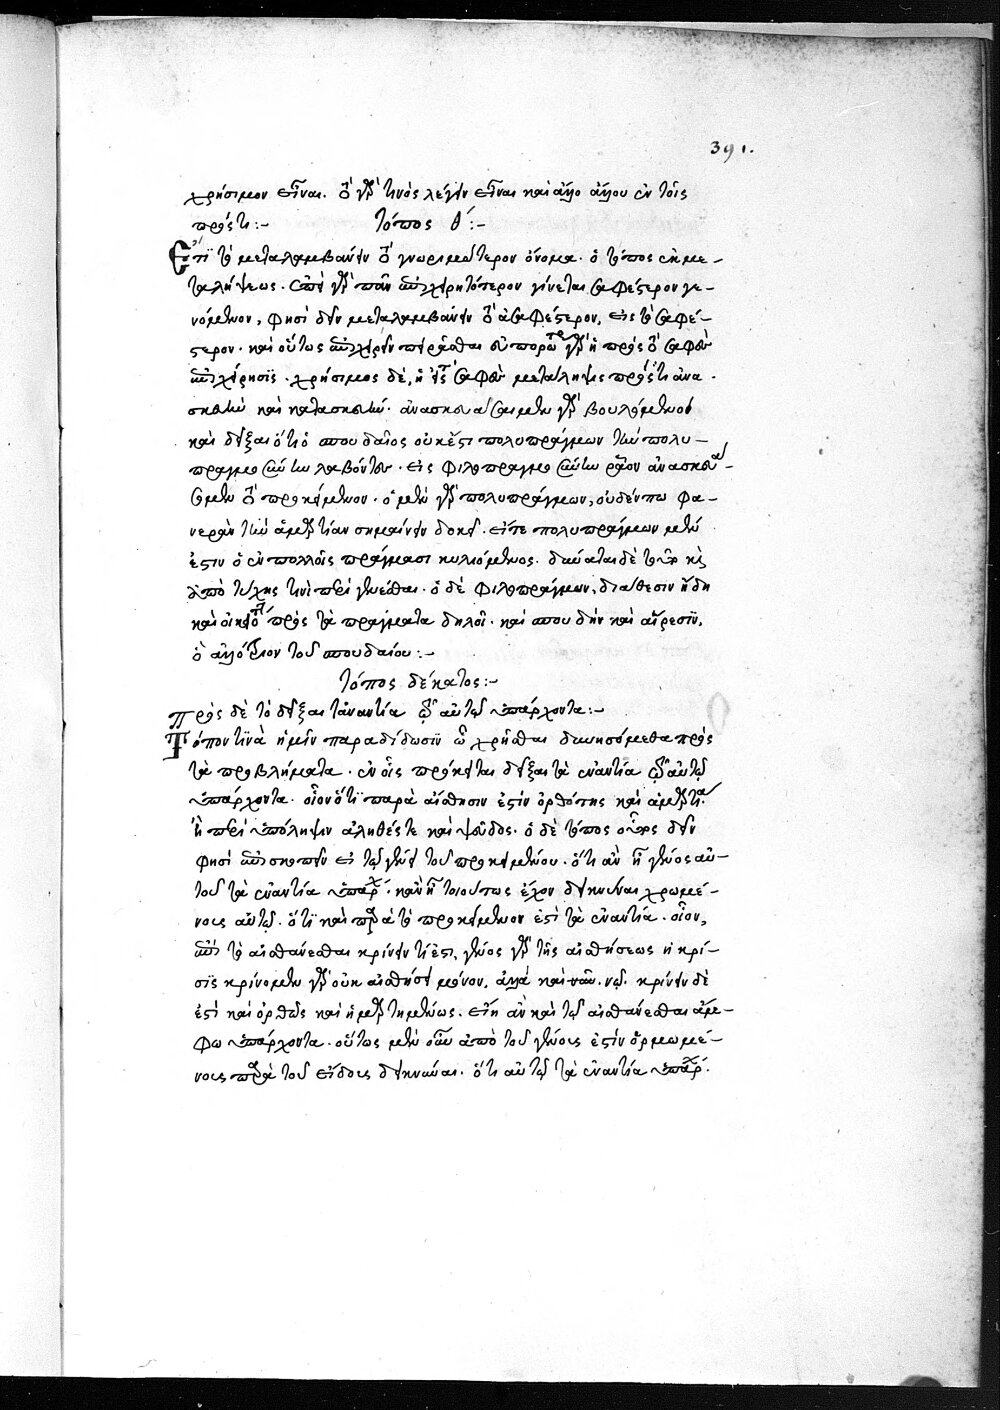 391.
χρήσιμον εἶναι. ὃ γὰρ τινὸς λέγειν εἶναι καὶ ἄλλο ἄλλου ἐν τοῖς
πρός τι:- τόπος θ´:-
Ἔτι τὸ μεταλαμβάνειν εἰς τὸ γνωριμώτερον ὄνομα. ὁ τόπος ἐκ με-
ταλήψεως. ἐπεὶ γὰρ πᾶν ἐπιχειρητότερον γίνεται σαφέστερον γε-
νόμενον, φησὶ δεῖν μεταλαμβάνειν τὸ ἀσαφέστερον, εἰς τὸ σαφέ-
στερον. καὶ οὕτως ἐπιχειρεῖν πειρᾶσθαι εὐπορωτέρα γὰρ ἡ πρὸς τὸ σαφὲς
ἐπιχείρησις. χρήσιμος δὲ, ἡ εἰς τὸ σαφὲς μετάληψις πρός τε ἀνα-
σκευὴν καὶ κατασκευήν. ἀνασκευάσαιμεν γὰρ βουλόμενοι
καὶ δεῖξαι ὅτι ὁ σπουδαῖος οὐκ ἔστι πολυπράγμων τὴν πολυ-
πραγμοσύνην λαβόντες. εἰς φιλοπραγμοσύνην ῥᾷον ἀνασκευά-
σομεν τὸ προκείμενον. ὁ μὲν γὰρ πολυπράγμων, οὐδέπω φα-
νερὰν τὴν ἁμαρτίαν σημαίνειν δοκεῖ. εἴγε πολυπράγμων μέν
ἐστιν ὁ ἐν πολλοῖς πράγμασι κυλιόμενος. δύναται δὲ τοῦτο καὶ
ἀπὸ τύχης τινὶ περιγενέσθαι. ὁ δὲ φιλοπράγμων, διάθεσιν ἤδη
καὶ οἰκειότητα πρὸς τὰ πράγματα δηλοῖ. καὶ σπουδὴν καὶ αἵρεσιν,
ὃ ἀλλότριον τοῦ σπουδαίου:-
τόπος δέκατος:-
Πρὸς δὲ τὸ δεῖξαι τἀναντία τῷ αὐτῷ ὑπάρχοντα:-
Τόπον τινὰ ἡμῖν παραδίδωσιν ᾧ χρῆσθαι δυνησόμεθα πρὸς
τὰ προβλήματα. ἐν οἷς πρόκειται δεῖξαι τὰ ἐναντία τῷ αὐτῷ
ὑπάρχοντα. οἷον ὅτι παρὰ αἴσθησιν ἐστὶν ὀρθότης καὶ ἁμαρτία.
ἢ περὶ ὑπόληψιν ἀληθές τε καὶ ψεῦδος. ὁ δὲ τόπος οὗτος δεῖν
φησὶ ἐπισκοπεῖν ἐπὶ τῷ γένει τοῦ προκειμένου. ὅτι ἂν ᾖ γένος αὐ-
τοῦ τὰ ἐναντία ὑπάρχει. κἂν ᾖ τοιούτως ἔχον δεικνύναι χρωμέ-
νους αὐτῷ. ὅτι καὶ παρὰ τὸ προκείμενον ἐστὶ τὰ ἐναντία. οἷον,
ἐπεὶ τὸ αἰσθάνεσθαι κρίνειν τί ἐστι, γένος γὰρ τῆς αἰσθήσεως ἡ κρί-
σις κρίνομεν γὰρ οὐκ αἰσθήσει μόνον, ἀλλὰ καὶ νῷ. κρίνειν δὲ
ἐστὶ καὶ ὀρθῶς καὶ ἡμαρτημένως. εἴη ἂν καὶ τῷ αἰσθάνεσθαι ἄμ-
φω ὑπάρχοντα. οὕτως μὲν οὖν ἀπὸ τοῦ γένους ἐστὶν ὁρμωμέ-
νους παρὰ τοῦ εἴδους δεικνύναι. ὅτι αὐτῷ τὰ ἐναντία ὑπάρχει.